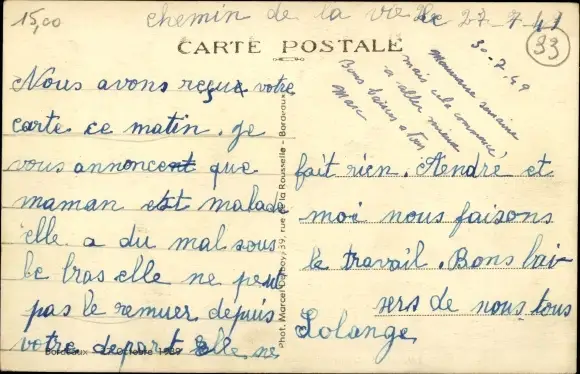 15,00
chemin de la vie le 27-7-41
33
CARTE POSTALE
30-7-49
Mauvaise semaine
mais cela commence
a aller mieux
Bons baisers a tous
Marc
Nous avons reçu votre
carte ce matin. Je
vous annonce que
maman est malade
elle a du mal sous
le bras elle ne peut
pas le remuer depuis
votre depart elle ne
fait rien. Andre et
moi nous faisons
le travail. Bons bai-
sers de nous tous
Solange
Phot. Marcel 39, rue de la Rousselle - Bordeaux
Bordeaux - Octobre